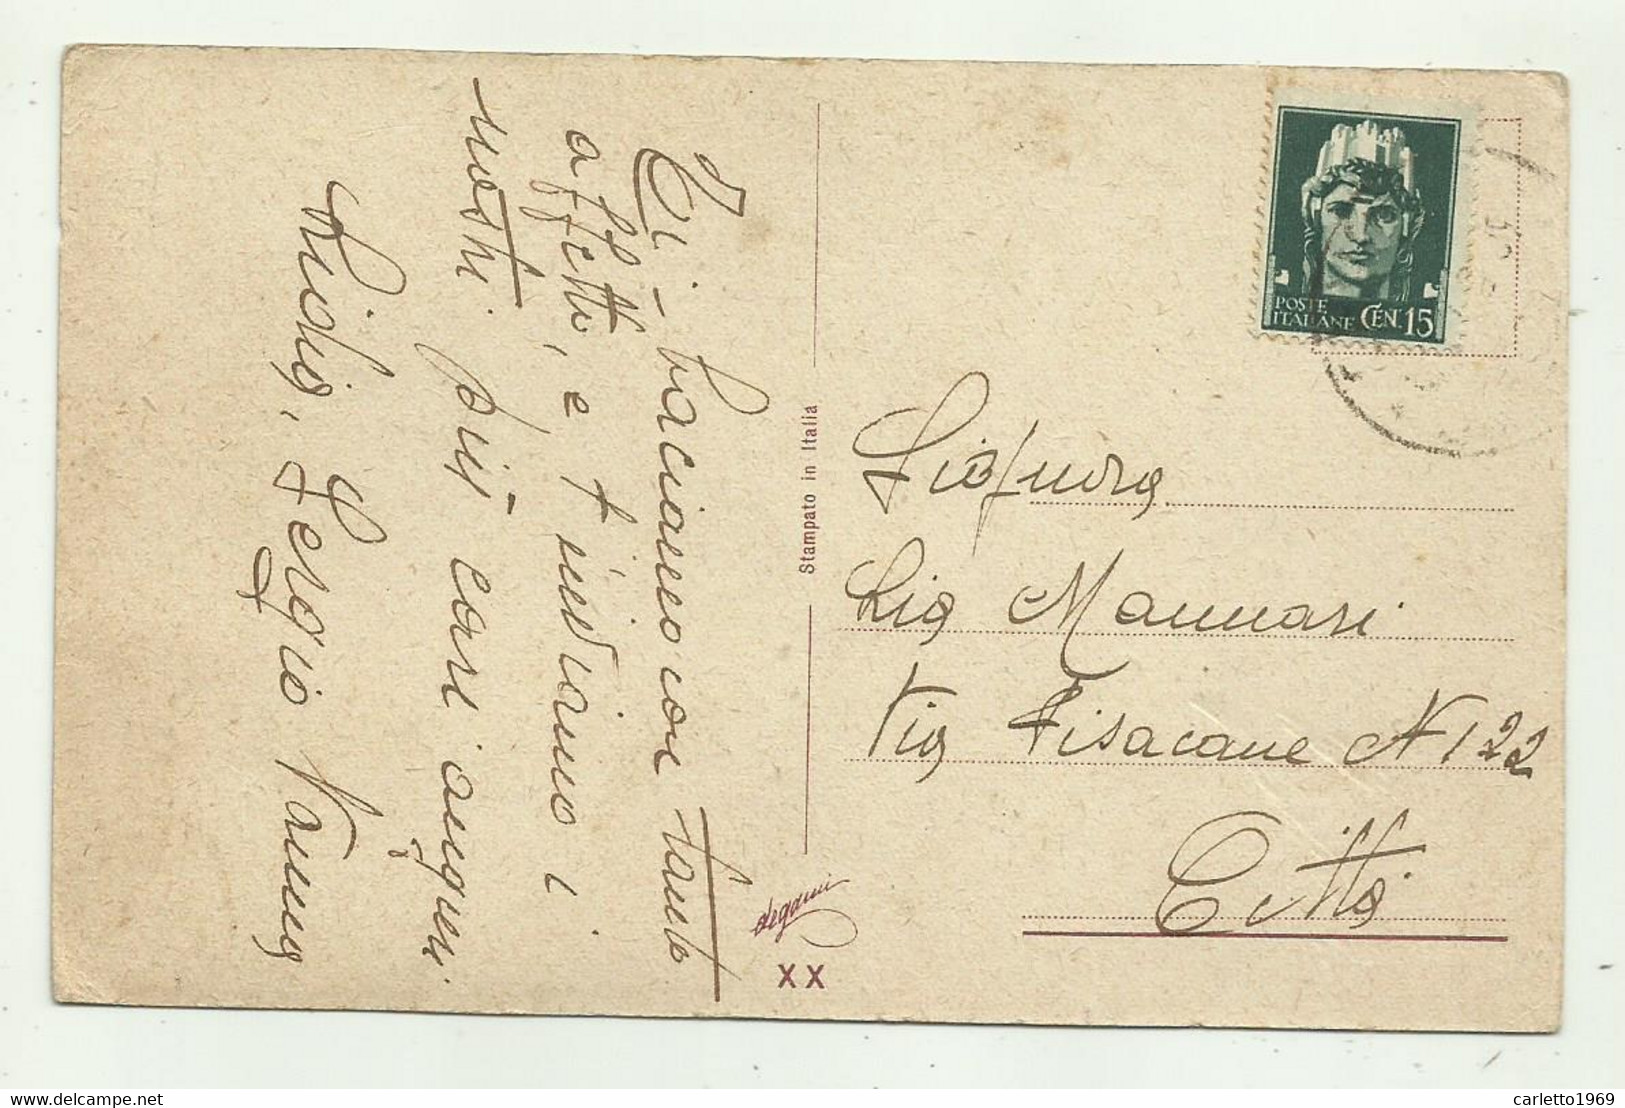 Ti baciamo con tanto
affetto, e t'inviamo i
nostri più cari auguri.
Lidia, Sergio Vanna
Stampato in Italia
Degami
XX
POSTE
ITALIANE CEN. 15
Signora
Lia Mannari
Via Pisacane N 122
Città
delcampe.net
carletto1969